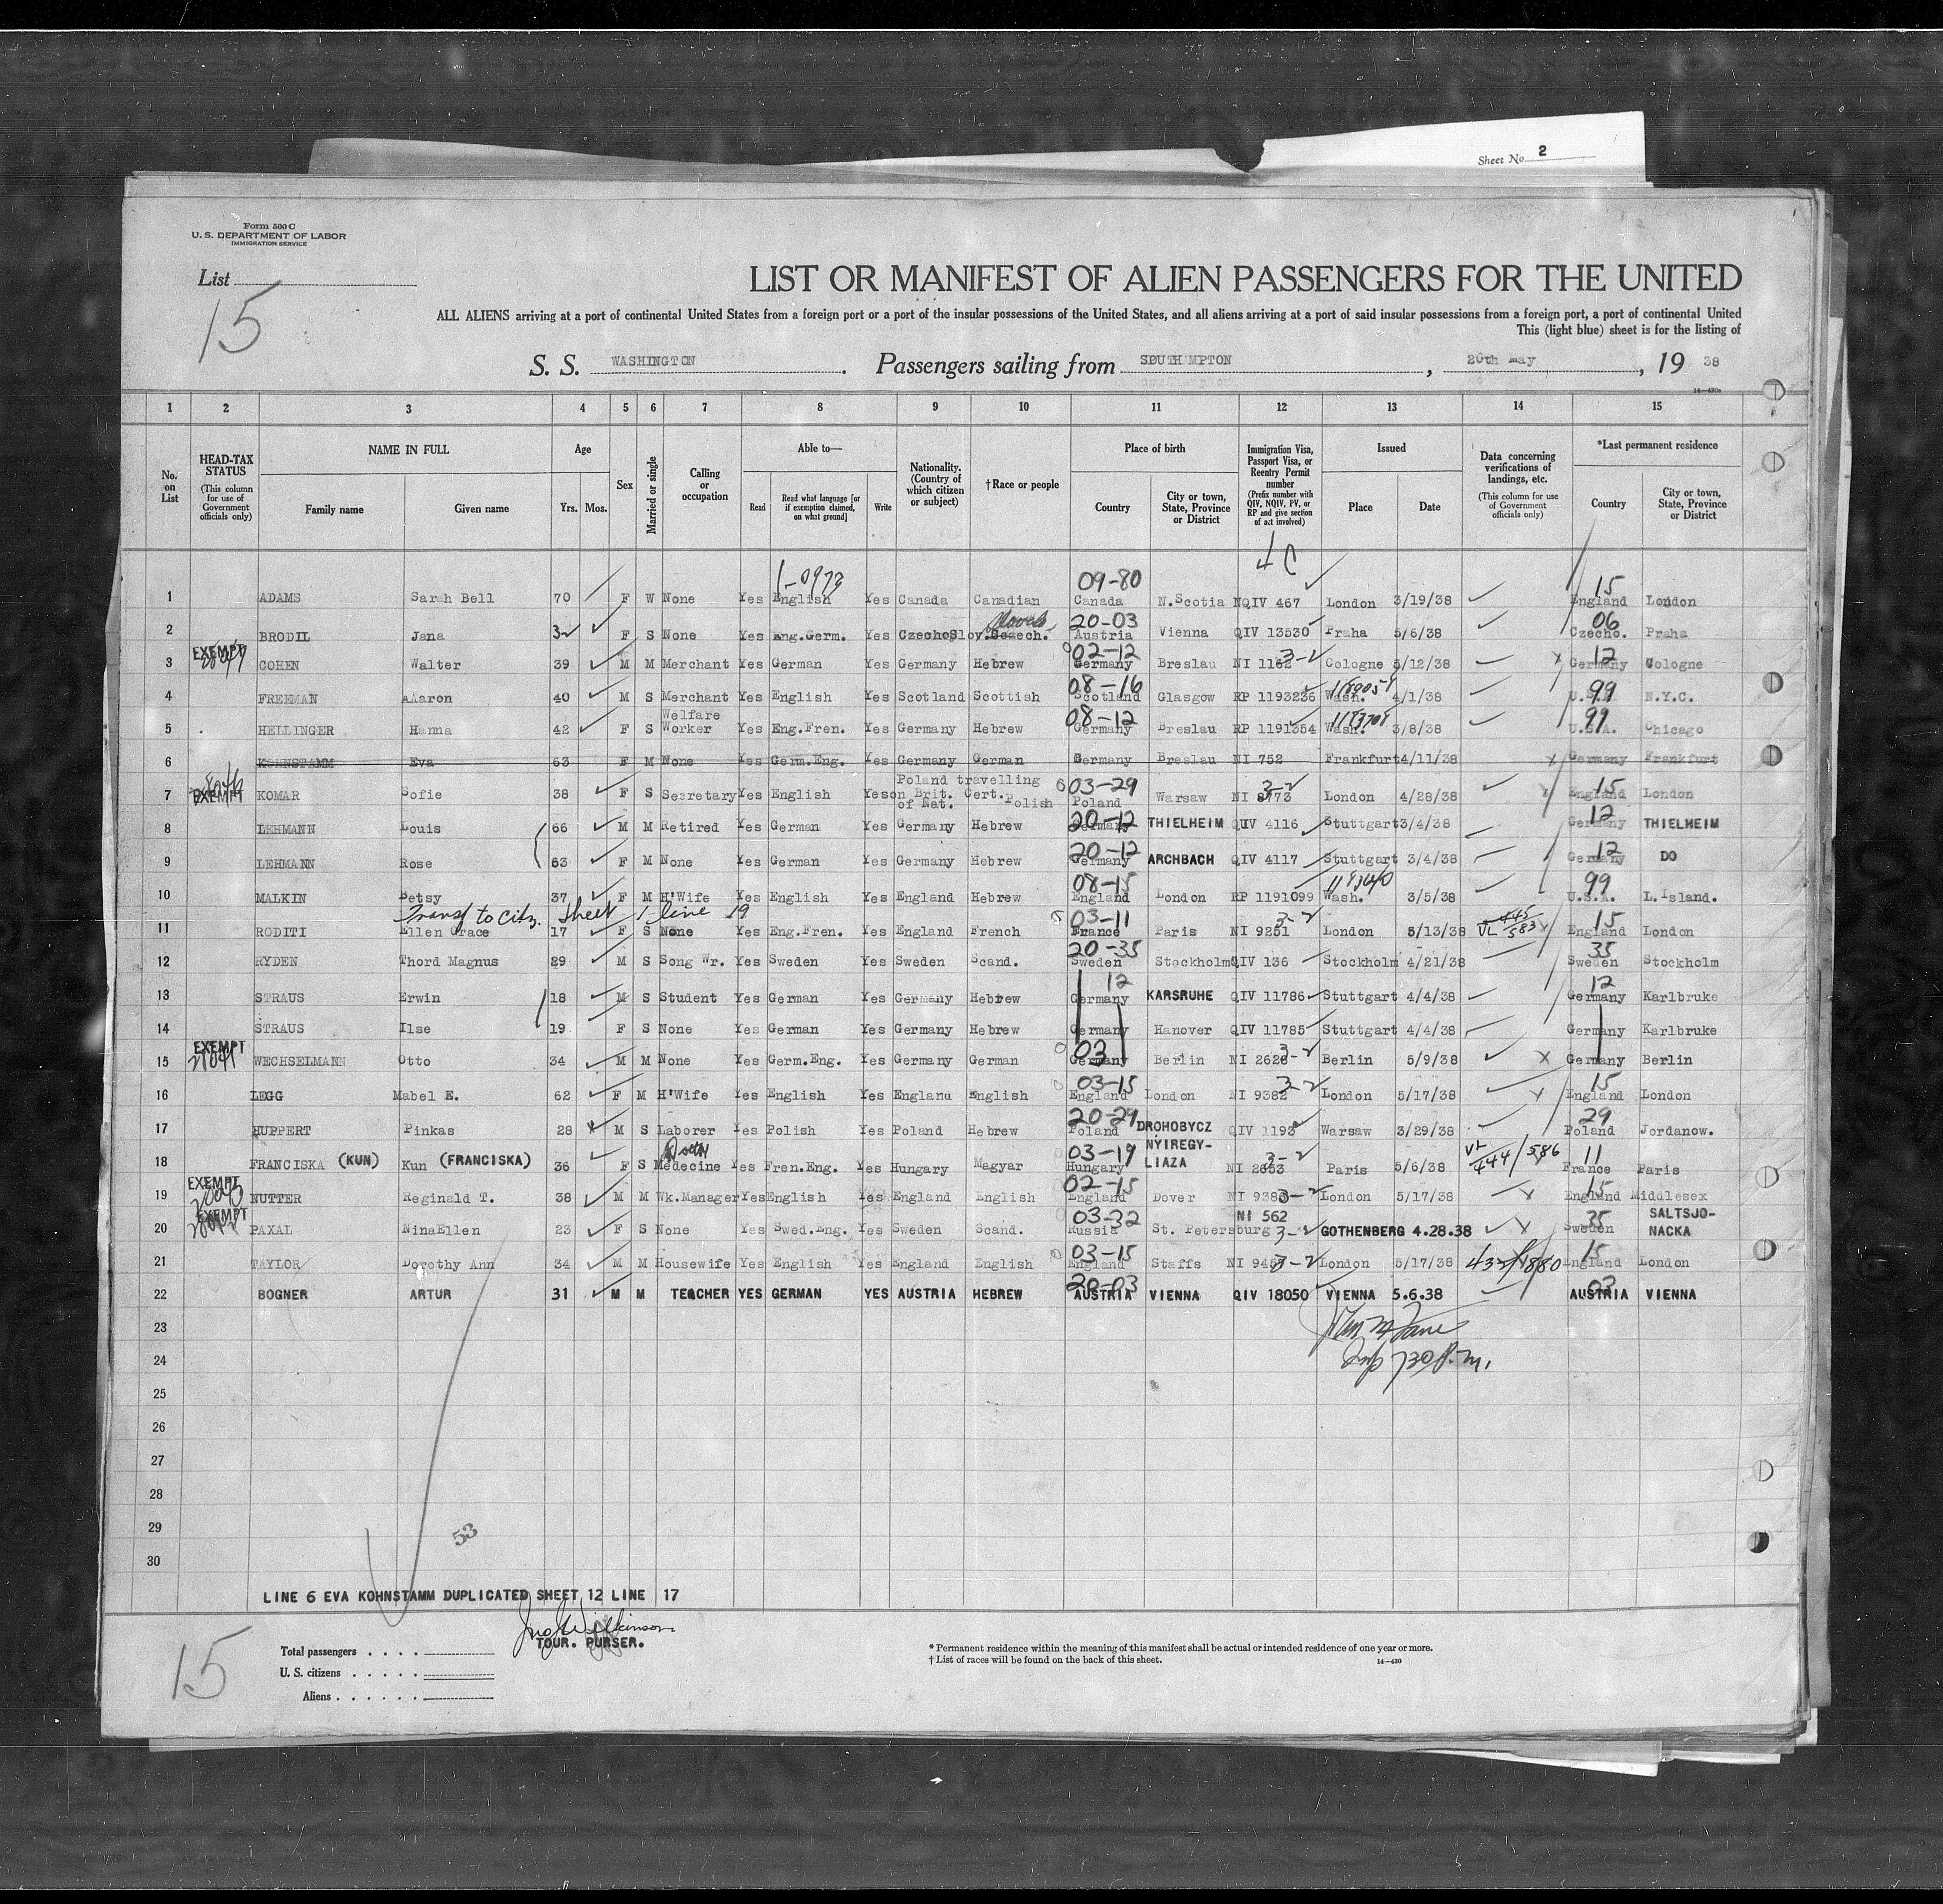 Sheet No. 2
Form 500 C
U. S. DEPARTMENT OF LABOR
IMMIGRATION SERVICE
List
15
LIST OR MANIFEST OF ALIEN PASSENGERS FOR THE UNITED
ALL ALIENS arriving at a port of continental United States from a foreign port or a port of the insular possessions of the United States, and all aliens arriving at a port of said insular possessions from a foreign port, a port of continental United
This (light blue) sheet is for the listing of
S. S. WASHINGTON . Passengers sailing from , 26th May , 19 38
1 2 3 4 5 6 7 8 9 10 11 12 13 14 15
No. on List
HEAD-TAX STATUS (This column for use of Government officials only)
NAME IN FULL Family name Given name
Age Yrs. Mos.
Sex
Married or single
Calling or occupation
Able to— Read Read what language [or if exemption claimed, on what ground] Write
Nationality. (Country of which citizen or subject)
†Race or people
Place of birth Country City or town, State, Province or District
Immigration Visa, Passport Visa, or Reentry Permit number (Prefix number with QIV, NQIV, PV, or RP and give section of act involved)
Issued Place Date
Data concerning verifications of landings, etc. (This column for use of Government officials only)
*Last permanent residence Country City or town, State, Province or District
4 C
1-0973 09-80 15
1 ADAMS Sarah Bell 70 F W None Yes English Yes Canada Canadian Canada N.Scotia NQIV 467 London 3/19/38 England London
20-03 06
2 BRODIL Jana 32 F S None Yes Eng.Germ. Yes CzechoSlov. Austria Vienna QIV 13530 Praha 5/6/38 Czecho. Praha
EXEMPT 02-12 12
3 COHEN Walter 39 M M Merchant Yes German Yes Germany Hebrew Germany Breslau NI 3-2 Cologne 5/12/38 Germany Cologne
08-16 99
4 FREEMAN AAaron 40 M S Merchant Yes English Yes Scotland Scottish Scotland Glasgow RP 1193236 Wash. 4/1/38 N.Y.C.
08-12 99
5 HELLINGER Hanna 42 F S Welfare Worker Yes Eng.Fren. Yes Germany Hebrew Germany Breslau RP 1191354 Wash. 3/8/38 U.S.A. Chicago
6 KOHNSTAMM Eva 63 F M None Yes Germ.Eng. Yes Germany German Germany Breslau NI 752 Frankfurt 4/11/38 Germany Frankfurt
EXEMPT 03-29 3-2 15
7 KOMAR Sofie 38 F S Secretary Yes English Yes Poland travelling on Brit. Cert. of Nat. Polish Poland Warsaw NI 8773 London 4/28/38 England London
20-12 12
8 LEHMANN Louis 66 M M Retired Yes German Yes Germany Hebrew Germany THIELHEIM QIV 4116 Stuttgart 3/4/38 Germany THIELHEIM
20-12 12
9 LEHMANN Rose 63 F M None Yes German Yes Germany Hebrew Germany ARCHBACH QIV 4117 Stuttgart 3/4/38 Germany DO
08-15 99
10 MALKIN Betsy 37 F M H'Wife Yes English Yes England Hebrew England London RP 1191099 Wash. 3/5/38 U.S.A. L.Island.
Transf to Citz. Sheet 1 line 19 03-11 3-2 15
11 RODITI Ellen Grace 17 F S None Yes Eng.Fren. Yes England French France Paris NI 9251 London 5/13/38 VL 445 583 England London
20-35 35
12 RYDEN Thord Magnus 29 M S Song Wr. Yes Sweden Yes Sweden Scand. Sweden Stockholm QIV 136 Stockholm 4/21/38 Sweden Stockholm
12 12
13 STRAUS Erwin 18 M S Student Yes German Yes Germany Hebrew Germany KARSRUHE QIV 11786 Stuttgart 4/4/38 Germany Karlbruke
14 STRAUS Ilse 19 F S None Yes German Yes Germany Hebrew Germany Hanover QIV 11785 Stuttgart 4/4/38 Germany Karlbruke
EXEMPT 03 3-2
15 WECHSELMANN Otto 34 M M None Yes Germ.Eng. Yes Germany German Germany Berlin NI 2628 Berlin 5/9/38 Germany Berlin
03-15 3-2 15
16 LEGG Mabel E. 62 F M H'Wife Yes English Yes England English England London NI 9382 London 5/17/38 England London
20-29 29
17 HUPPERT Pinkas 28 M S Laborer Yes Polish Yes Poland Hebrew Poland DROHOBYCZ QIV 1193 Warsaw 3/29/38 Poland Jordanow.
03-19 3-2 11
18 FRANCISKA (KUN) Kun (FRANCISKA) 36 F S Medecine Yes Fren.Eng. Yes Hungary Magyar Hungary NYIREGY-LIAZA NI 2653 Paris 5/6/38 VL 444 / 586 France Paris
EXEMPT 02-15 3-2 15
19 NUTTER Reginald T. 38 M M Wk.Manager Yes English Yes England English England Dover NI London 5/17/38 England Middlesex
EXEMPT 03-32 3-2 35
20 PAXAL NinaEllen 23 F S None Yes Swed.Eng. Yes Sweden Scand. Russia St. Petersburg NI 562 GOTHENBERG 4.28.38 Sweden SALTSJO-NACKA
03-15 3-2 15
21 TAYLOR Dorothy Ann 34 M M Housewife Yes English Yes England English England Staffs NI London 5/17/38 England London
20-03 03
22 BOGNER ARTUR 31 M M TEACHER YES GERMAN YES AUSTRIA HEBREW AUSTRIA VIENNA QIV 18050 VIENNA 5.6.38 AUSTRIA VIENNA
23
24 730 P.M.
25
26
27
28
29
53
30
LINE 6 EVA KOHNSTAMM DUPLICATED SHEET 12 LINE 17
TOUR. PURSER.
15
Total passengers
U. S. citizens
Aliens
* Permanent residence within the meaning of this manifest shall be actual or intended residence of one year or more.
† List of races will be found on the back of this sheet.
14—430